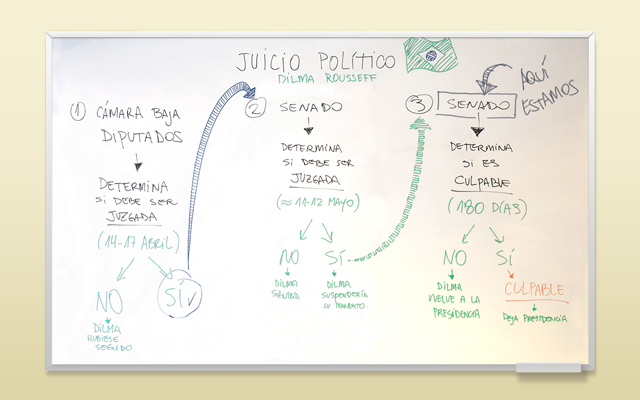 JUICIO POLÍTICO
DILMA ROUSSEFF
① CÁMARA BAJA
DIPUTADOS
DETERMINA
SI DEBE SER
JUZGADA
(14-17 ABRIL)
NO
DILMA
HUBIESE
SEGUIDO
SÍ
② SENADO
DETERMINA
SI DEBE SER
JUZGADA
(≈ 11-12 MAYO)
NO
DILMA
SÍ
DILMA
SUSPENDERÍA
SU MANDATO.
③ SENADO
AQUÍ
ESTAMOS
DETERMINA
SI ES
CULPABLE
(180 DÍAS)
NO
DILMA
VUELVE A LA
PRESIDENCIA
SÍ
CULPABLE
DEJA PRESIDENCIA